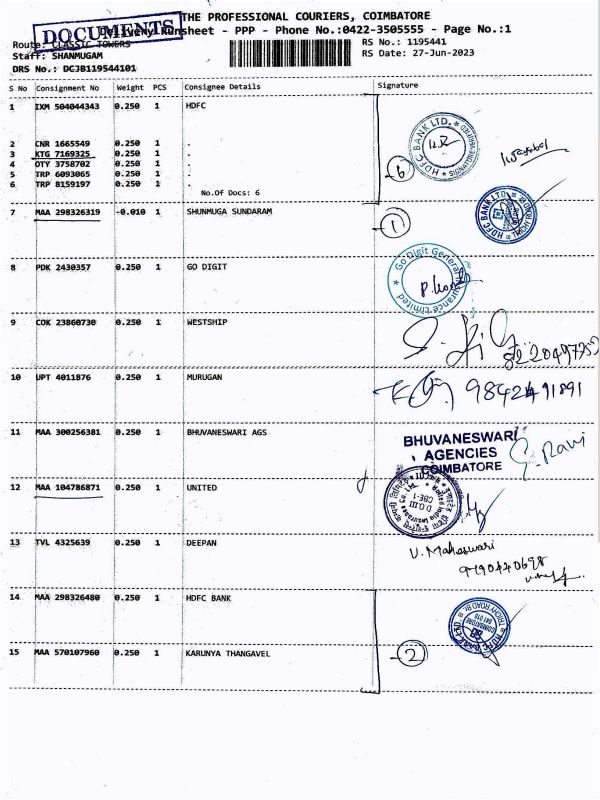 THE PROFESSIONAL COURIERS, COIMBATORE
DOCUMENTS
Delivery Runsheet - PPP - Phone No.:0422-3505555 - Page No.:1
Route: CLASSIC TOWERS
RS No.: 1195441
Staff: SHANMUGAM
RS Date: 27-Jun-2023
DRS No.: DCJB119544101
S No Consignment No Weight PCS Consignee Details Signature
1 IXM 504044343 0.250 1 HDFC
2 CNR 1665549 0.250 1 .
3 KTG 7169325 0.250 1 .
4 OTY 3758702 0.250 1 .
5 TRP 6093065 0.250 1 .
6 TRP 8159197 0.250 1 .
No.Of Docs: 6
6
HDFC BANK LTD.
7 MAA 298326319 -0.010 1 SHUNMUGA SUNDARAM
1
HDFC BANK LTD.
8 PDK 2430357 0.250 1 GO DIGIT
Go Digit General Insurance Limited
9 COK 23860730 0.250 1 WESTSHIP
10 UPT 4011876 0.250 1 MURUGAN
11 MAA 300256381 0.250 1 BHUVANESWARI AGS
BHUVANESWARI
AGENCIES
COIMBATORE
G. Ravi
12 MAA 104786871 0.250 1 UNITED
D.O.III
CBE-1
13 TVL 4325639 0.250 1 DEEPAN
U. Maheswari
14 MAA 298326480 0.250 1 HDFC BANK
15 MAA 570107960 0.250 1 KARUNYA THANGAVEL
2